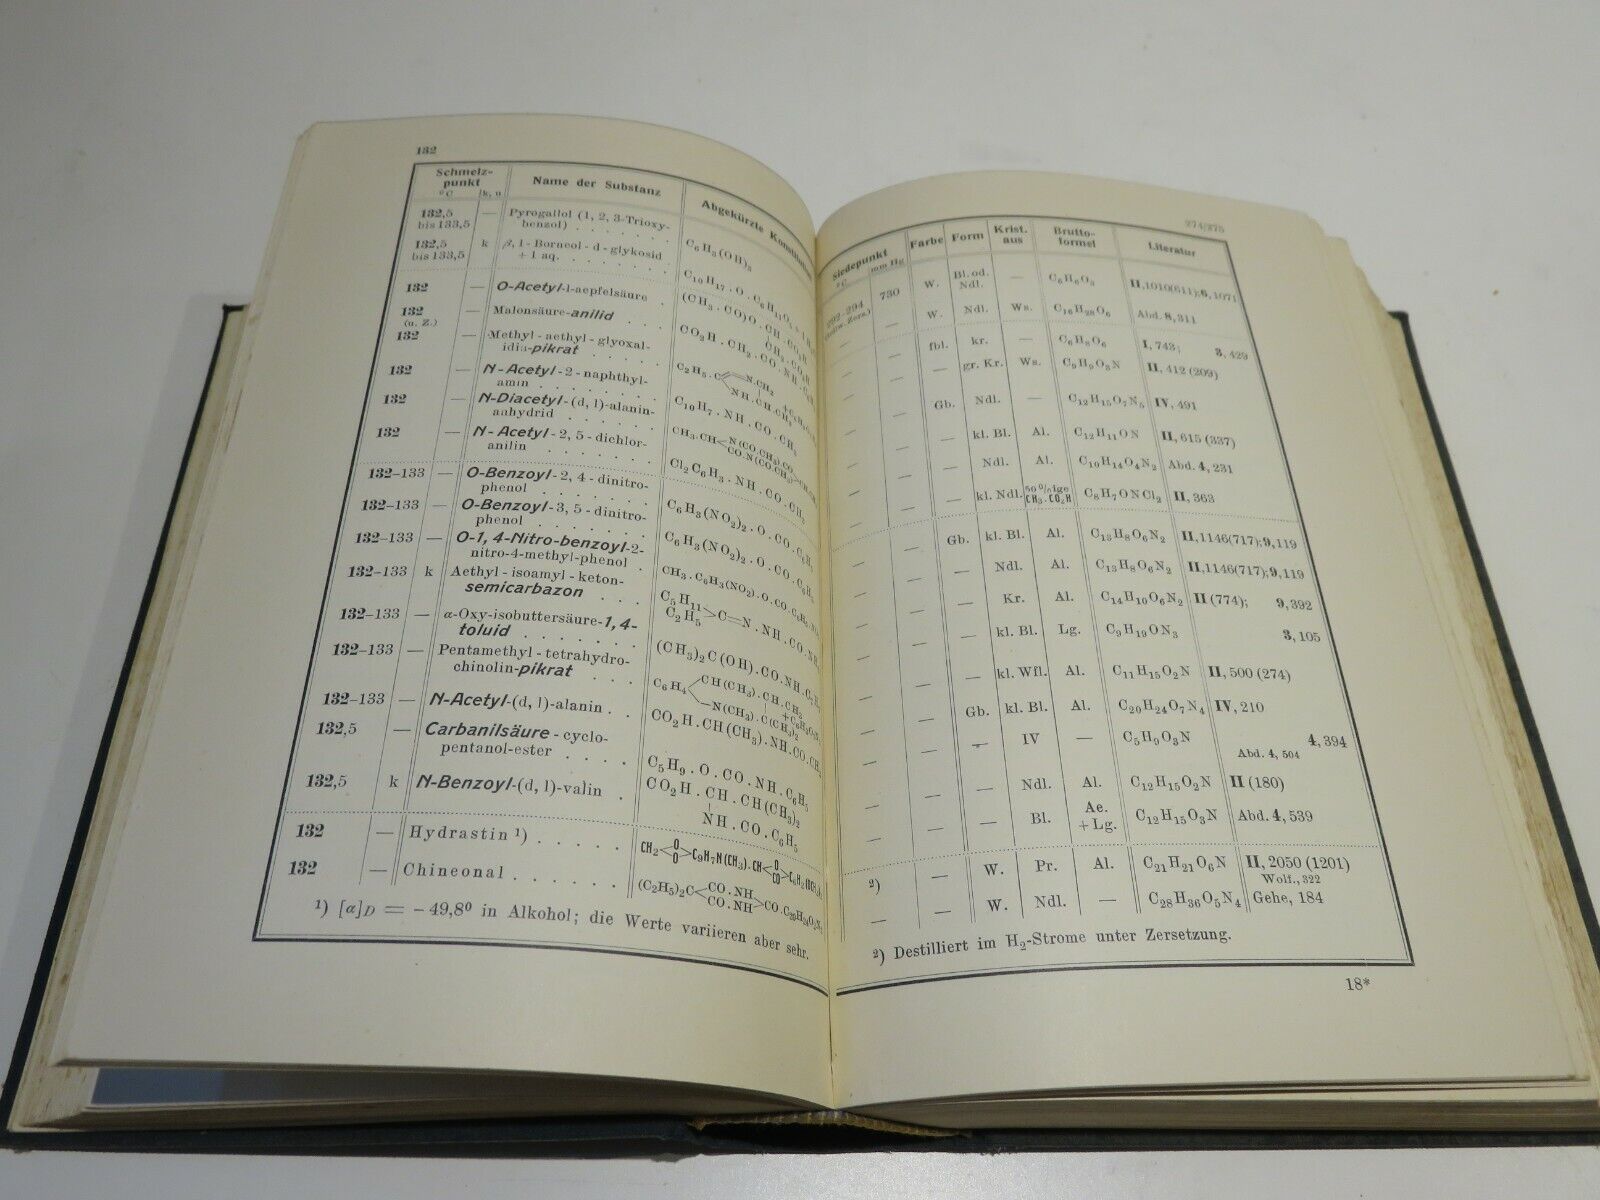 132
Schmelz-
punkt
°C k, u
Name der Substanz
Abgekürzte Konstitution
132,5
bis 133,5 — Pyrogallol (1, 2, 3-Trioxy-
benzol) . . . . . . C₆H₃(OH)₃
132,5
bis 133,5 k β, l-Borneol-d-glykosid
+ 1 aq. . . . . . . C₁₀H₁₇.O.C₆H₁₁O₅
132 — O-Acetyl-l-aepfelsäure . (CH₃.CO)O.CH.CO₂H
CH₂.CO₂H
132
(u. Z.) — Malonsäure-anilid . . . CO₂H.CH₂.CO.NH.
132 — Methyl-aethyl-glyoxal-
idin-pikrat . . . . C₂H₅.C N.CH₂
NH.CH.CH₃
132 — N-Acetyl-2-naphthyl-
amin . . . . . . C₁₀H₇.NH.CO.CH₃
132 — N-Diacetyl-(d, l)-alanin-
anhydrid . . . . . CH₃.CH<N(CO.CH₃).CO
CO.N(CO.CH₃)
132 — N-Acetyl-2,5-dichlor-
anilin . . . . . . Cl₂C₆H₃.NH.CO.CH₃
132–133 — O-Benzoyl-2, 4-dinitro-
phenol . . . . . . C₆H₃(NO₂)₂.O.CO.C₆H₅
132–133 — O-Benzoyl-3, 5-dinitro-
phenol . . . . . . C₆H₃(NO₂)₂.O.CO.C₆H₅
132–133 — O-1, 4-Nitro-benzoyl-2-
nitro-4-methyl-phenol . CH₃.C₆H₃(NO₂).O.CO.
132–133 k Aethyl-isoamyl-keton-
semicarbazon . . . C₅H₁₁
C₂H₅>C=N.NH.CO.NH₂
132–133 — α-Oxy-isobuttersäure-1,4-
toluid . . . . . . (CH₃)₂C(OH).CO.NH.C₇H₇
132–133 — Pentamethyl-tetrahydro-
chinolin-pikrat . . . C₆H₄ CH(CH₃).CH.CH₃
N(CH₃).C(CH₃)₂
132–133 — N-Acetyl-(d, l)-alanin . . CO₂H.CH(CH₃).NH.CO.CH₃
132,5 — Carbanilsäure-cyclo-
pentanol-ester . . . . C₅H₉.O.CO.NH.C₆H₅
132,5 k N-Benzoyl-(d, l)-valin . CO₂H.CH.CH(CH₃)₂
NH.CO.C₆H₅
132 — Hydrastin ¹) . . . . . CH₂<O O>C₉H₇N(CH₃).CH<O CO>
132 — Chineonal . . . . . . (C₂H₅)₂C<CO.NH
CO.NH>CO.
¹) [α]D = −49,8⁰ in Alkohol; die Werte variieren aber sehr.
274/275
Siedepunkt
°C mm Hg
Farbe
Form
Krist.
aus
Brutto-
formel
Literatur
292–294 730 W. Bl. od.
Ndl. — C₆H₆O₃ II, 1010(611); 6, 1071
— — W. Ndl. Ws. C₁₆H₂₈O₆ Abd. 8, 311
— — fbl. kr. — C₆H₈O₆ I, 743; 3, 429
— — gr. Kr. Ws. C₉H₉O₃N II, 412 (209)
— — Gb. Ndl. — C₁₂H₁₅O₇N₅ IV, 491
— — — kl. Bl. Al. C₁₂H₁₁ON II, 615 (337)
— — — Ndl. Al. C₁₀H₁₄O₄N₂ Abd. 4, 231
— — — kl. Ndl. 50%ige
CH₃.CO₂H C₈H₇ONCl₂ II, 363
— — Gb. kl. Bl. Al. C₁₃H₈O₆N₂ II, 1146(717); 9, 119
— — — Ndl. Al. C₁₃H₈O₆N₂ II, 1146(717); 9, 119
— — — Kr. Al. C₁₄H₁₀O₆N₂ II (774); 9, 392
— — — kl. Bl. Lg. C₉H₁₉ON₃ 3, 105
— — — kl. Wfl. Al. C₁₁H₁₅O₂N II, 500 (274)
— — Gb. kl. Bl. Al. C₂₀H₂₄O₇N₄ IV, 210
— — — IV — C₅H₉O₃N 4, 394
Abd. 4, 504
— — — Ndl. Al. C₁₂H₁₅O₂N II (180)
— — — Bl. Ae.
+ Lg. C₁₂H₁₅O₃N Abd. 4, 539
²) — W. Pr. Al. C₂₁H₂₁O₆N II, 2050 (1201)
Wolf., 322
— — W. Ndl. — C₂₈H₃₆O₅N₄ Gehe, 184
²) Destilliert im H₂-Strome unter Zersetzung.
18*